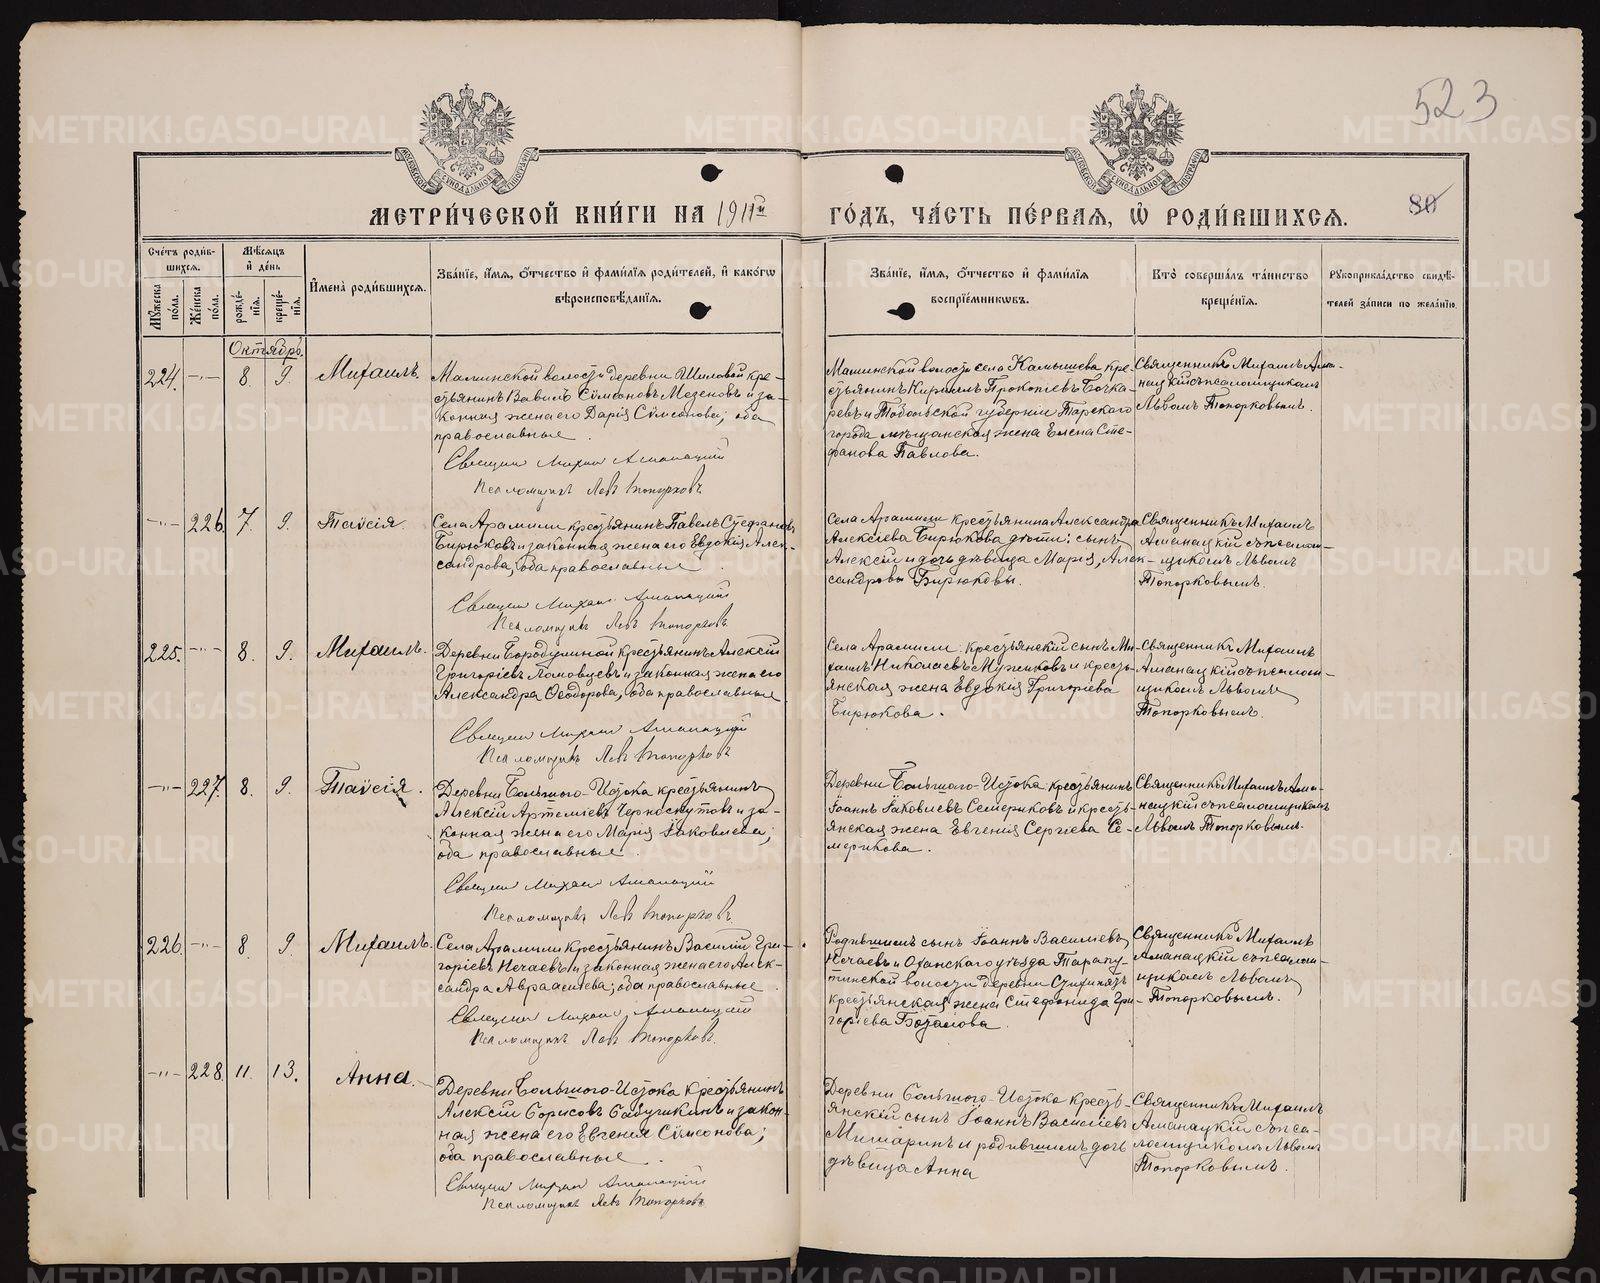 523
МЕТРИ́ЧЕСКОЙ КНИ́ГИ НА 1911й ГО́ДЪ, ЧА́СТЬ ПЕ́РВАЯ, Ѡ҆ РОДИ́ВШИХСЯ.
80
Счетъ родившихся.
Мужеска пола.
Женска пола.
Мѣсяцъ и день
рожденія.
крещенія.
Имена родившихся.
Званіе, имя, отчество и фамилія родителей, и какогѡ
вѣроисповѣданія.
Званіе, имя, отчество и фамилія
воспріемникѡвъ.
Кто совершалъ таинство
крещенія.
Рукоприкладство свидѣ-
телей записи по желанію.
Октябрь.
224. —"— 8. 9. Михаилъ.
Малинской волости деревни Шиловой кре-
стьянинъ Вавилъ Сѵмеоновъ Мезеновъ и за-
конная жена его Дарія Сѵмеонова; оба
православные.
Священ Михаил Аманацкий
Псаломщикъ Левъ Топорковъ
Малинской волости села Камышева кре-
стьянинъ Кириллъ Прокопіевъ Бочка-
ревъ и Тобольской губерніи Тарского
города мѣщанская жена Елена Сте-
фанова Павлова.
Священникъ Михаилъ Ама-
нацкій съ псаломщикомъ
Львомъ Топорковымъ.
—"— 226. 7. 9. Таисія.
Села Арамили крестьянинъ Павелъ Стефановъ
Бирюковъ и законная жена его Евдокія Алек-
сандрова, оба православные.
Священ Михаил Аманацкий
Псаломщикъ Левъ Топорковъ
Села Арамили крестьянина Александра
Алексіева Бирюкова дѣти: сынъ
Алексій и дочь дѣвица Марія, Алек-
сандровы Бирюковы.
Священникъ Михаилъ
Аманацкій съ псалом-
щикомъ Львомъ
Топорковымъ.
225. —"— 8. 9. Михаилъ.
Деревни Бородулиной крестьянинъ Алексій
Григоріевъ Ломовцевъ и законная жена его
Александра Ѳеодорова, оба православные
Священ Михаил Аманацкий
Псаломщикъ Левъ Топорковъ
Села Арамили крестьянскій сынъ Ми-
хаилъ Николаевъ Мужиковъ и кресть-
янская жена Евдокія Григоріева
Бирюкова.
Священникъ Михаилъ
Аманацкій съ псалом-
щикомъ Львомъ
Топорковымъ.
—"— 227. 8. 9. Таисія.
Деревни Большого-Истока крестьянинъ
Алексій Артеміевъ Черноскутовъ и за-
конная жена его Марія Іаковлева;
оба православные.
Священ Михаил Аманацкий
Псаломщикъ Левъ Топорковъ
Деревни Большого-Истока крестьянинъ
Іоаннъ Іаковлевъ Семериковъ и кресть-
янская жена Евгенія Сергіева Се-
мерикова.
Священникъ Михаилъ Ама-
нацкій съ псаломщикомъ
Львомъ Топорковымъ.
226. —"— 8. 9. Михаилъ.
Села Арамили крестьянинъ Василій Гри-
горіевъ Нечаевъ и законная жена его Алек-
сандра Авраамиева; оба православные.
Священ Михаил Аманацкий
Псаломщикъ Левъ Топорковъ.
Родившимъ сынъ Іоаннъ Васильевъ
Нечаевъ и Оханскаго уѣзда
волости деревни
крестьянская жена Стефанида Гри-
горіева
Священникъ Михаилъ
Аманацкій съ псалом-
щикомъ Львомъ
Топорковымъ.
—"— 228. 11. 13. Анна.
Деревни Большого-Истока крестьянинъ
Алексій Борисовъ Бабушкинъ и закон-
ная жена его Евгенія Сѵмеонова;
оба православные.
Священ Михаил Аманацкий
Псаломщикъ Левъ Топорковъ
Деревни Большого-Истока кресть-
янскій сынъ Іоаннъ Васильевъ
Мишаринъ и родившимъ дочь
дѣвица Анна
Священникъ Михаилъ
Аманацкій съ пса-
ломщикомъ Львомъ
Топорковымъ.
METRIKI.GASO-URAL.RU